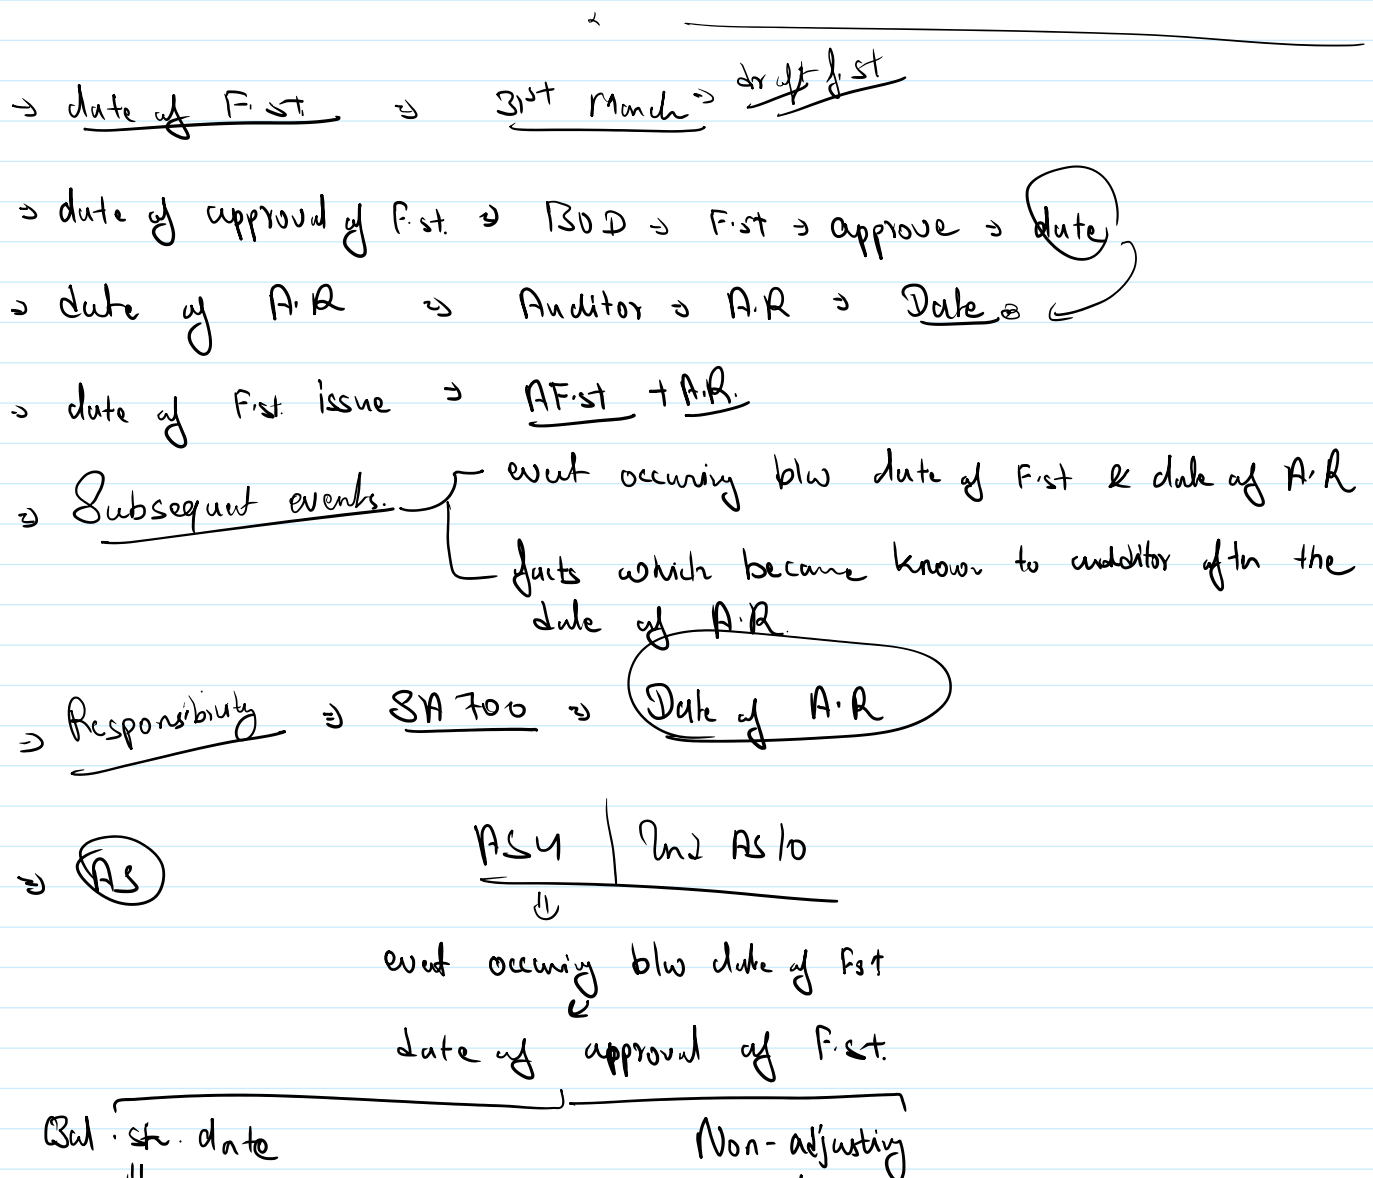 → date of F. st. ⇒ 31st March → draft f. st
→ date of approval of F. st. ⇒ BOD → F. st → approve → date
→ date of A.R ⇒ Auditor → A.R → Date
→ date of F. st. issue ⇒ AF. st + A.R.
⇒ Subsequent events. event occuring b/w date of F. st & date of A.R
facts which became known to auditor after the
date of A.R.
⇒ Responsibility ⇒ SA 700 ⇒ Date of A.R
⇒ AS AS 4 | Ind AS 10
⇓
event occuring b/w date of Fst
date of approval of F. st.
Bal. sh. date Non-adjusting